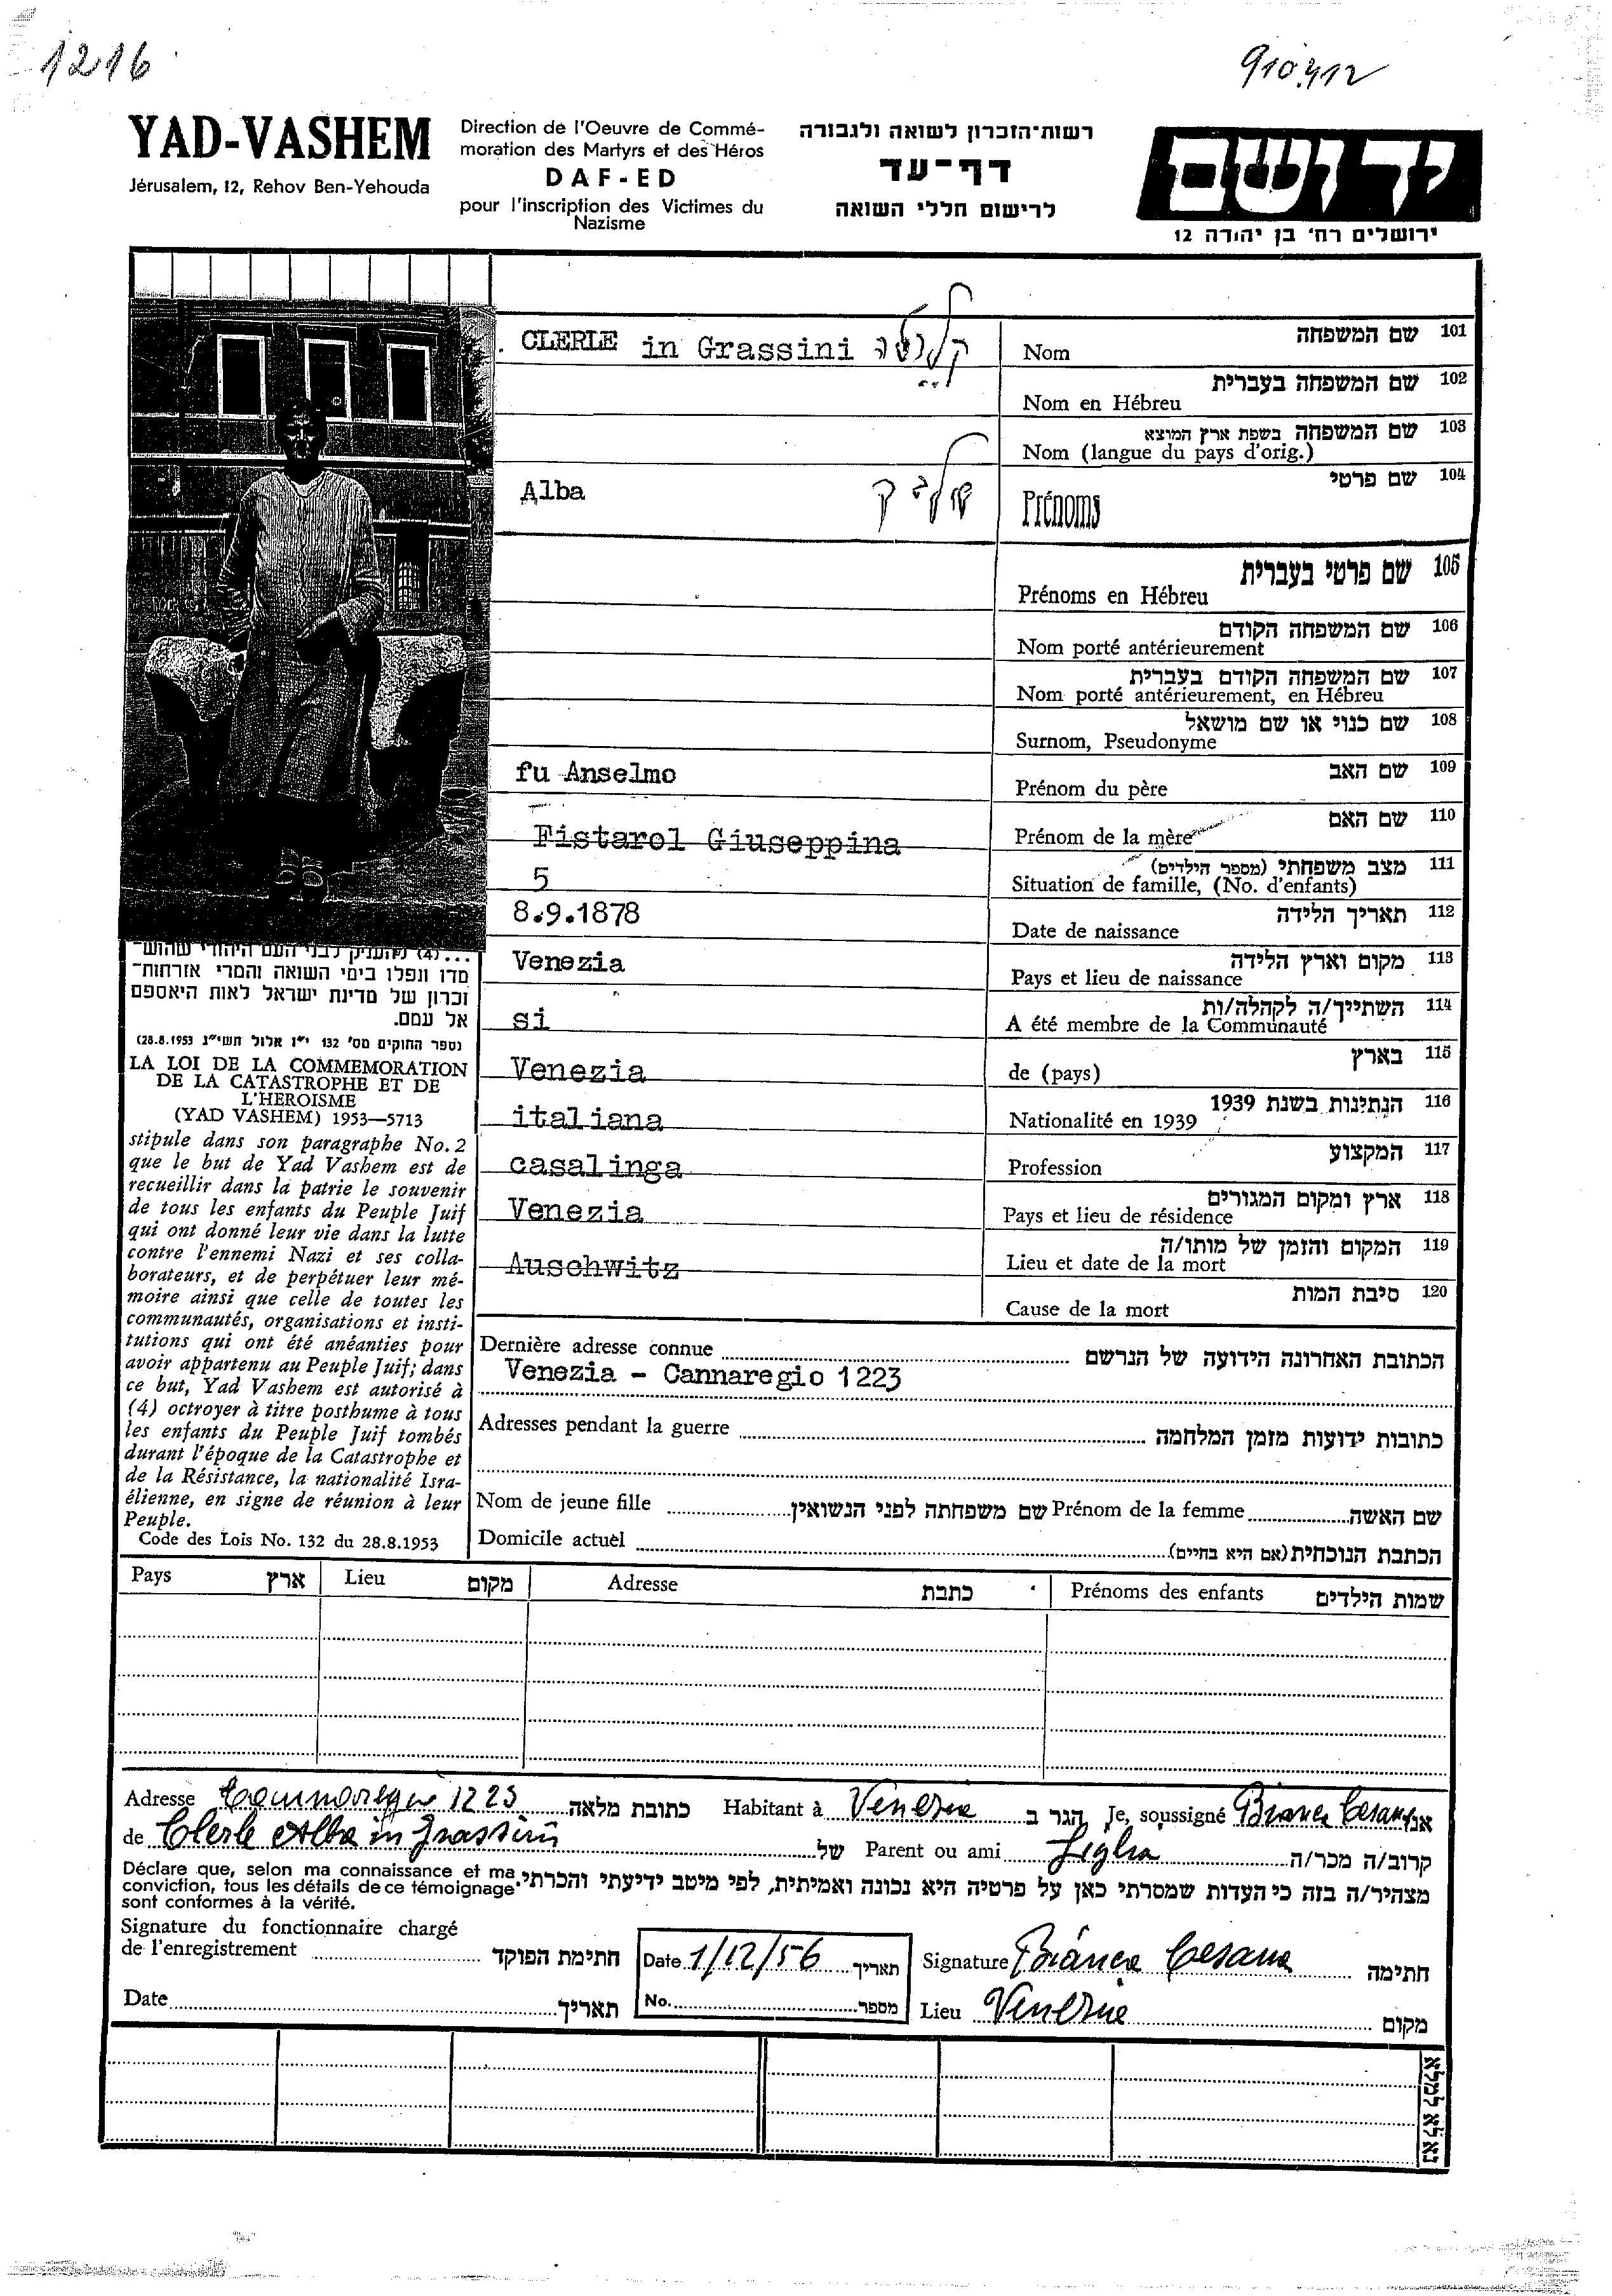 1216
910412
YAD-VASHEM
Jérusalem, 12, Rehov Ben-Yehouda
Direction de l'Oeuvre de Commé-
moration des Martyrs et des Héros
DAF-ED
pour l'inscription des Victimes du
Nazisme
רשות־הזכרון לשואה ולגבורה
דף־עד
לרישום חללי השואה
יד ושם
ירושלים רח' בן יהודה 12
CLERLE in Grassini
Nom
שם המשפחה 101
Nom en Hébreu
שם המשפחה בעברית 102
Nom (langue du pays d'orig.)
שם המשפחה בשפת ארץ המוצא 103
Alba
Prénoms
שם פרטי 104
Prénoms en Hébreu
שם פרטי בעברית 105
Nom porté antérieurement
שם המשפחה הקודם 106
Nom porté antérieurement, en Hébreu
שם המשפחה הקודם בעברית 107
Surnom, Pseudonyme
שם כנוי או שם מושאל 108
fu Anselmo
Prénom du père
שם האב 109
Fistarol Giuseppina
Prénom de la mère
שם האם 110
5
Situation de famille, (No. d'enfants)
מצב משפחתי (מספר הילדים) 111
8.9.1878
Date de naissance
תאריך הלידה 112
Venezia
Pays et lieu de naissance
מקום וארץ הלידה 113
si
A été membre de la Communauté
השתייך/ה לקהלה/ות 114
Venezia
de (pays)
בארץ 115
italiana
Nationalité en 1939
הנתינות בשנת 1939 116
casalinga
Profession
המקצוע 117
Venezia
Pays et lieu de résidence
ארץ ומקום המגורים 118
Auschwitz
Lieu et date de la mort
המקום והזמן של מותו/ה 119
Cause de la mort
סיבת המות 120
...(4) להעניק לבני העם היהודי שהוש־
מדו ונפלו בימי השואה והמרי אזרחות־
זכרון של מדינת ישראל לאות היאספם
אל עמם.
(ספר החוקים מס' 132 י"ז אלול תשי"ג 28.8.1953)
LA LOI DE LA COMMEMORATION
DE LA CATASTROPHE ET DE
L'HEROISME
(YAD VASHEM) 1953—5713
stipule dans son paragraphe No. 2
que le but de Yad Vashem est de
recueillir dans la patrie le souvenir
de tous les enfants du Peuple Juif
qui ont donné leur vie dans la lutte
contre l'ennemi Nazi et ses colla-
borateurs, et de perpétuer leur mé-
moire ainsi que celle de toutes les
communautés, organisations et insti-
tutions qui ont été anéanties pour
avoir appartenu au Peuple Juif; dans
ce but, Yad Vashem est autorisé à
(4) octroyer à titre posthume à tous
les enfants du Peuple Juif tombés
durant l'époque de la Catastrophe et
de la Résistance, la nationalité Isra-
élienne, en signe de réunion à leur
Peuple.
Code des Lois No. 132 du 28.8.1953
Dernière adresse connue הכתובת האחרונה הידועה של הנרשם
Venezia - Cannaregio 1223
Adresses pendant la guerre כתובות ידועות מזמן המלחמה
Nom de jeune fille שם משפחתה לפני הנשואין Prénom de la femme שם האשה
Domicile actuel הכתבת הנוכחית (אם היא בחיים)
Pays ארץ Lieu מקום Adresse כתבת Prénoms des enfants שמות הילדים
Adresse Cannaregio 1223 כתובת מלאה Habitant à Venezia הגר ב Je, soussigné Bianca Cesana אני
de Clerle Alba in Grassini של Parent ou ami figlia קרוב/ה מכר/ה
Déclare que, selon ma connaissance et ma
conviction, tous les détails de ce témoignage
sont conformes à la vérité.
מצהיר/ה בזה כי העדות שמסרתי כאן על פרטיה היא נכונה ואמיתית, לפי מיטב ידיעתי והכרתי.
Signature du fonctionnaire chargé
de l'enregistrement חתימת הפוקד
Date 1/12/56 תאריך
Signature Bianca Cesana חתימה
Date תאריך
No. מספר
Lieu Venezia מקום
נא לא למלא